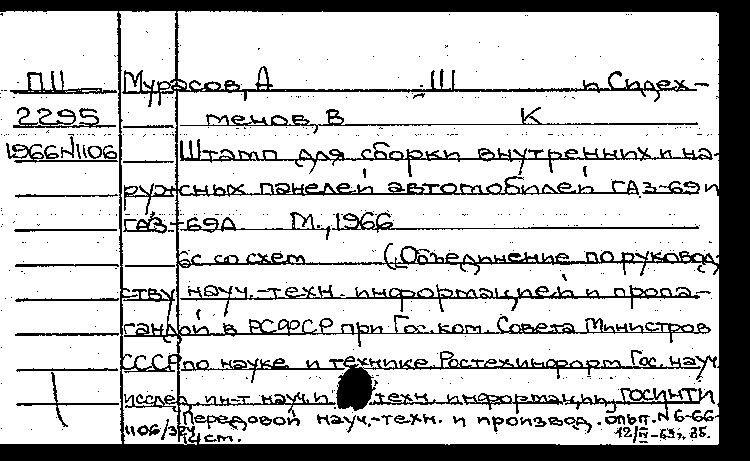 П11 Мурасов, А III и Сидех-
2295 менов, В К
1966N1106 Штамп для сборки внутренних и на-
ружных панелей автомобилей ГАЗ-69 и
ГАЗ-69А М., 1966
6с со схем (Объединение по руковод
ству науч.-техн. информацией и пропа-
гандой в РСФСР при Гос. ком. Совета Министров
СССР по науке и технике. Ростехинформ Гос. науч
исслед. ин-т науч и техн. информации, ГОСИНТИ
Передовой науч.-техн. и производ. опыт. N 6-66-
1106/3